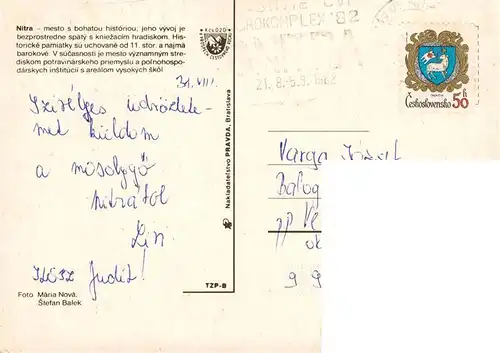 Nitra – mesto s bohatou históriou, jeho vývoj je
bezprostredne spätý s kniežacím hradiskom. His-
torické pamiatky sú uchované od 11. stor. a najmä
barokové. V súčasnosti je mesto významným stre-
diskom potravinárskeho priemyslu a poľnohospo-
dárskych inštitúcií s areálom vysokých škôl
31. VIII.
Szívélyes üdvözlete-
met küldöm
a mosolygó
Nitrától
Judit!
Foto Mária Nová,
Štefan Balek
TZP-B
Nakladateľstvo PRAVDA, Bratislava
Kčs 0,20
'82
21. 8.-5. 9. 1982
Československo 50 h
Varga József
Balog
pp Ve
9 9